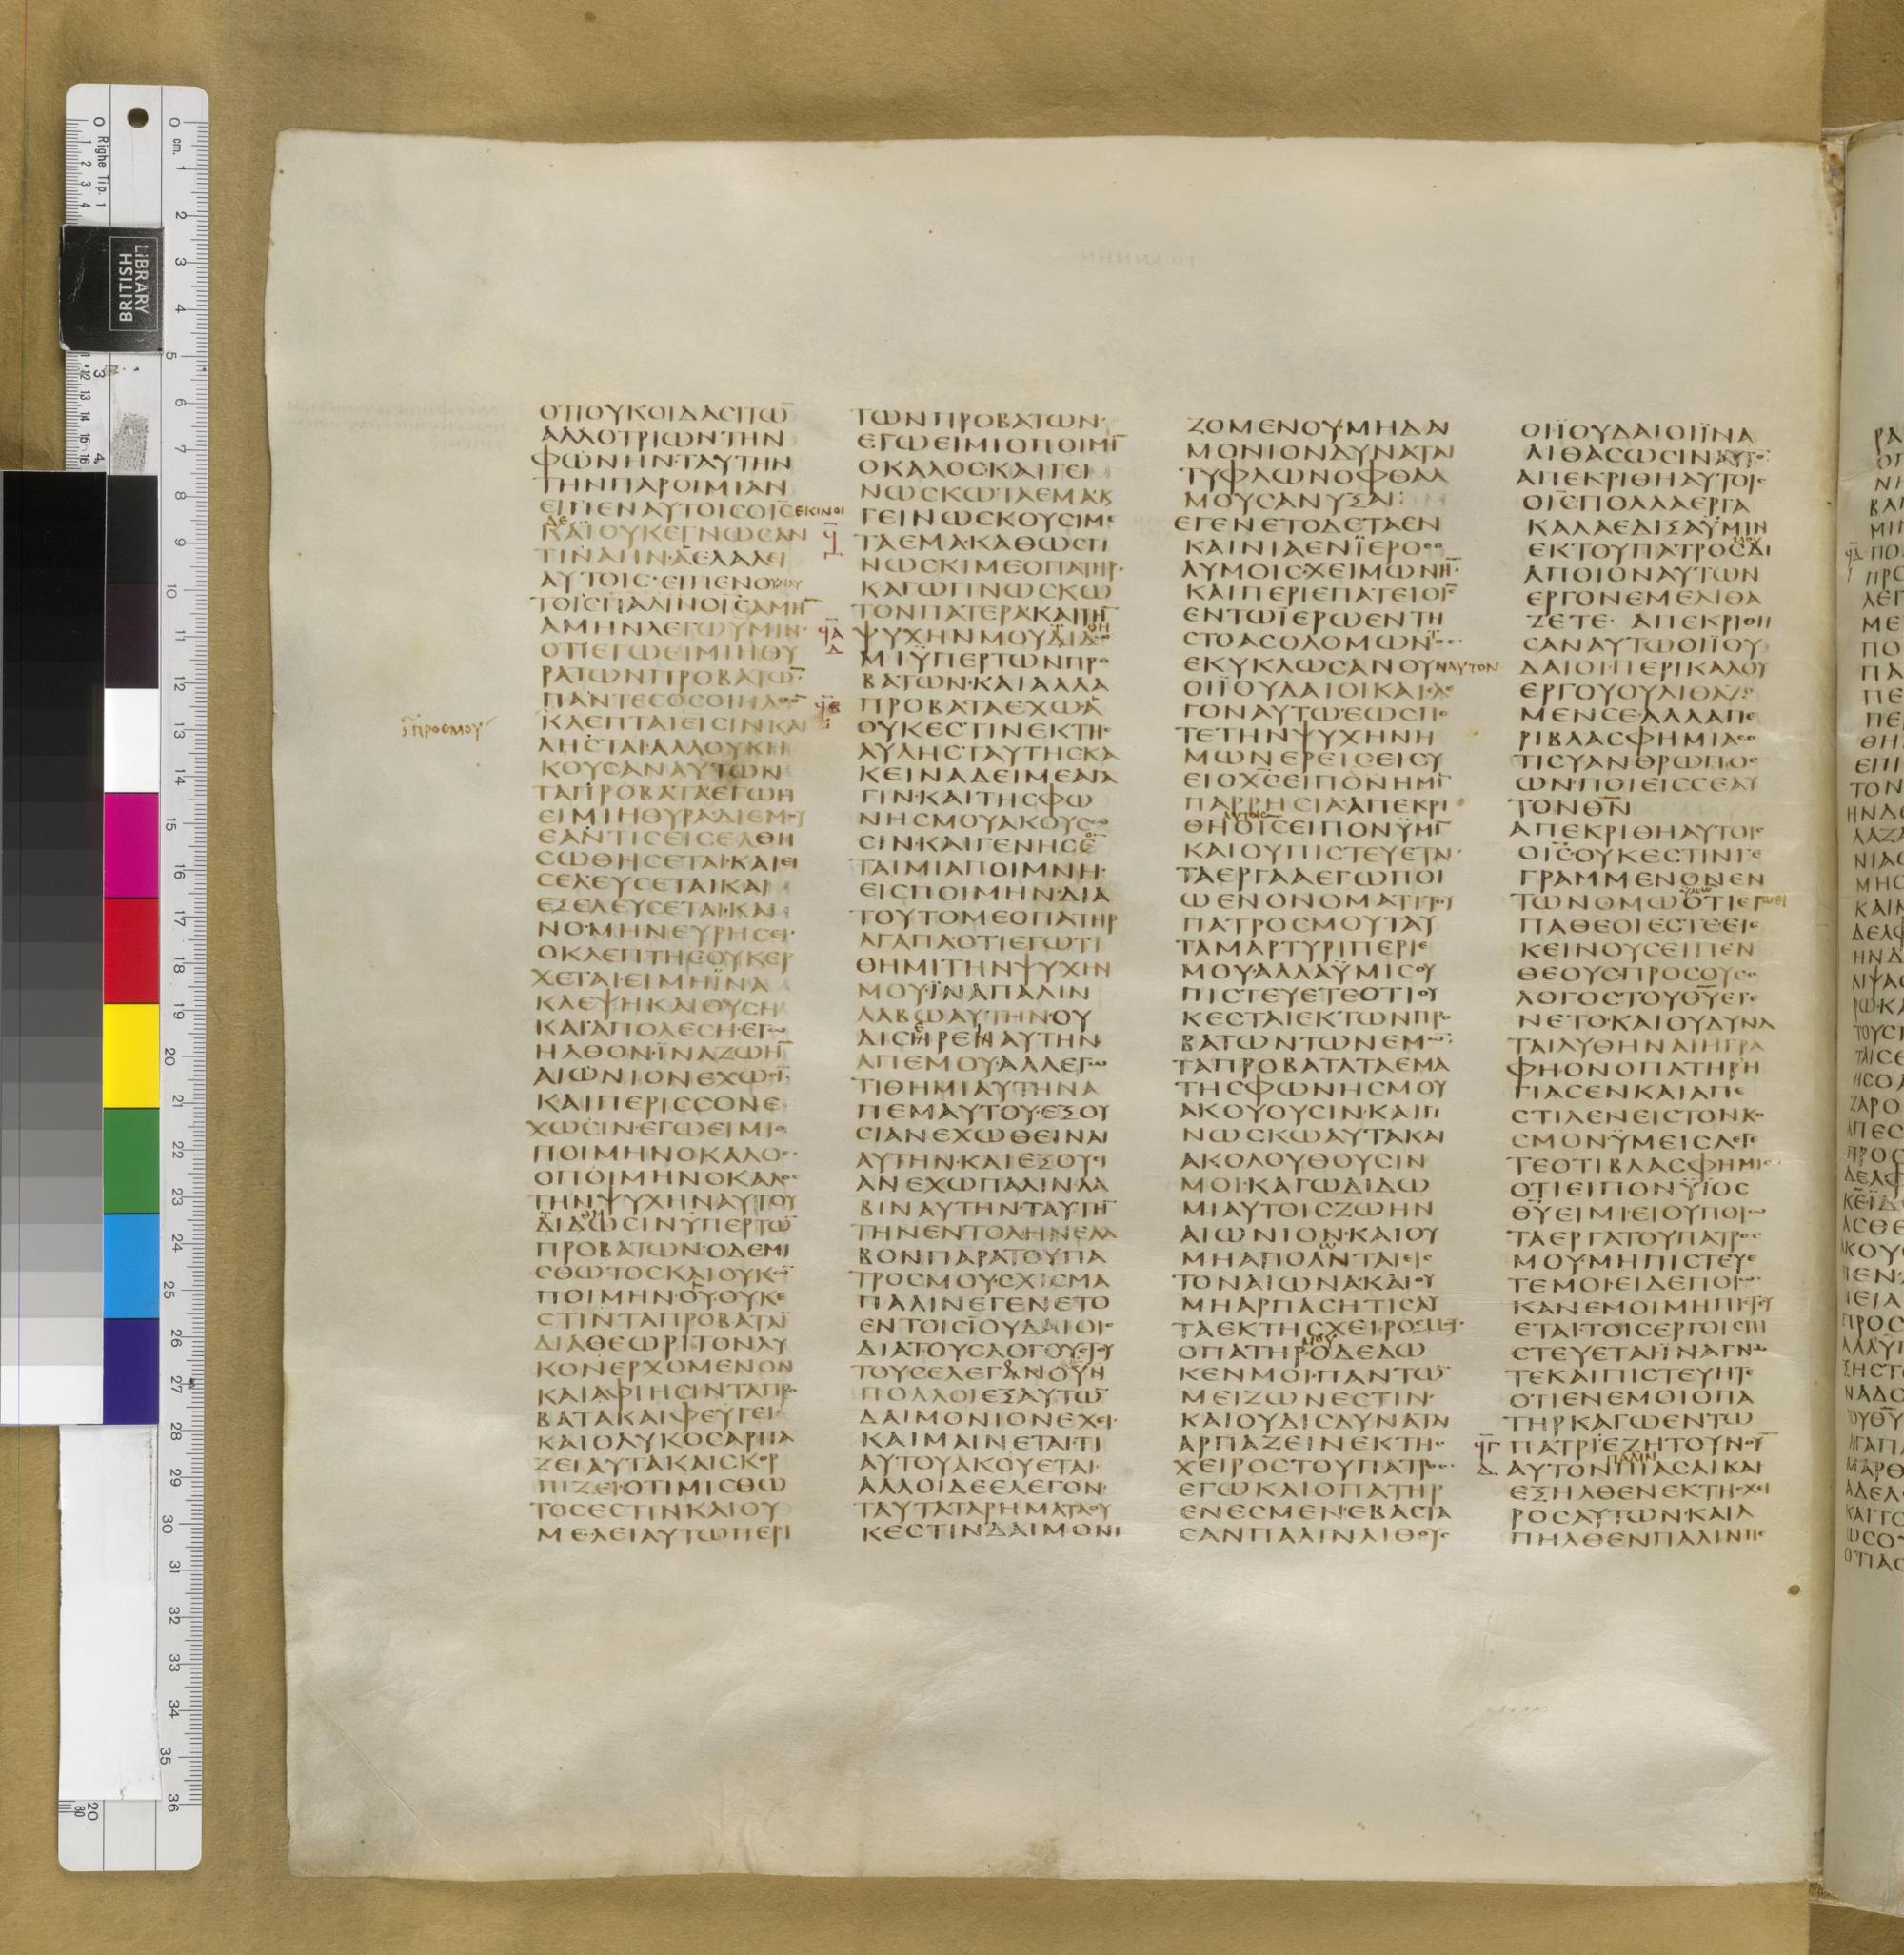 ΟΤΙΟΥΚΟΙΔΑϹΙΤΩ̅
ΑΛΛΟΤΡΙΩΝΤΗΝ
ΦΩΝΗΝ·ΤΑΥΤΗΝ
ΤΗΝΠΑΡΟΙΜΙΑΝ
ΕΙΠΕΝΑΥΤΟΙϹΟΙ̅Ϲ̅ΕΚΙΝΟΙ
ΔΕ
ΚΑΙΟΥΚΕΓΝΩϹΑΝ
ΤΙΝΑΗΝ·ΑΕΛΑΛΕΙ
ΑΥΤΟΙϹ·ΕΙΠΕΝΟΥΝΑΥ
ΤΟΙϹΠΑΛΙΝΟΙ̅Ϲ̅ΑΜΗ̅
ΑΜΗΝΛΕΓΩΥΜΙΝ·
ΟΤΙΕΓΩΕΙΜΙΗΘΥ
ΡΑΤΩΝΠΡΟΒΑΤΩ̅·
ΠΑΝΤΕϹΟϹΟΙΗΛΘΟ̅
ΠΡΟΕΜΟΥ
ΚΛΕΠΤΑΙΕΙϹΙΝΚΑΙ
ΛΗϹΤΑΙ·ΑΛΛΟΥΚΗ
ΚΟΥϹΑΝΑΥΤΩΝ
ΤΑΠΡΟΒΑΤΑΕΓΩΗ
ΕΙΜΙΗΘΥΡΑΔΙΕΜΟΥ
ΕΑΝΤΙϹΕΙϹΕΛΘΗ
ϹΩΘΗϹΕΤΑΙ·ΚΑΙΕΙ
ϹΕΛΕΥϹΕΤΑΙΚΑΙ
ΕΞΕΛΕΥϹΕΤΑΙ·ΚΑΙ
ΝΟ·ΜΗΝΕΥΡΗϹΕΙ·
ΟΚΛΕΠΤΗϹΟΥΚΕΡ
ΧΕΤΑΙ·ΕΙΜΗΪΝΑ
ΚΛΕΨΗΚΑΙΘΥϹΗ
ΚΑΙΑΠΟΛΕϹΗ·ΕΓΩ
ΗΛΘΟΝ·ΪΝΑΖΩΗ̅
ΑΙΩΝΙΟΝΕΧΩϹΙ̅
ΚΑΙΠΕΡΙϹϹΟΝΕ
ΧΩϹΙΝ·ΕΓΩΕΙΜΙΟ
ΠΟΙΜΗΝΟΚΑΛΟϹ·
ΟΠΟΙΜΗΝΟΚΑΛΟϹ
ΤΗΝΨΥΧΗΝΑΥΤΟΥ
ΔΙΔΩϹΙΝΫΠΕΡΤΩ̅
ΠΡΟΒΑΤΩΝ·ΟΔΕΜΙ
ϹΘΩΤΟϹΚΑΙΟΥΚΩ̅
ΠΟΙΜΗΝ·ΟΥ·ΟΥΚΕ
ϹΤΙΝΤΑΠΡΟΒΑΤΑΪ
ΔΙΑΘΕΩΡΙΤΟΝΛΥ
ΚΟΝΕΡΧΟΜΕΝΟΝ
ΚΑΙΑΦΙΗϹΙΝΤΑΠΡΟ
ΒΑΤΑΚΑΙΦΕΥΓΕΙ·
ΚΑΙΟΛΥΚΟϹΑΡΠΑ
ΖΕΙΑΥΤΑΚΑΙϹΚΟΡ
ΠΙΖΕΙ·ΟΤΙΜΙϹΘΩ
ΤΟϹΕϹΤΙΝΚΑΙΟΥ
ΜΕΛΕΙΑΥΤΩΠΕΡΙ
ΤΩΝΠΡΟΒΑΤΩΝ·
ΕΓΩΕΙΜΙΟΠΟΙΜΗ̅
ΟΚΑΛΟϹΚΑΙΓΕΙ
ΝΩϹΚΩ·ΤΑΕΜΑΚΑΙ
ΓΕΙΝΩϹΚΟΥϹΙΜΕ
ϥ̅
Γ
ΤΑΕΜΑ·ΚΑΘΩϹΓΙ
ΝΩϹΚΙΜΕΟΠΑΤΗΡ·
ΚΑΓΩΓΙΝΩϹΚΩ
ΤΟΝΠΑΤΕΡΑ·ΚΑΙΤΗ̅
ϥ̅Α̅
Δ
ΨΥΧΗΝΜΟΥΔΙΔΩ
ΜΙΫΠΕΡΤΩΝΠΡΟ
ΒΑΤΩΝ·ΚΑΙΑΛΛΑ
ϥ̅Β̅
ΠΡΟΒΑΤΑΕΧΩ·Α
ΟΥΚΕϹΤΙΝΕΚΤΗϹ
ΑΥΛΗϹ·ΤΑΥΤΗϹΚΑ
ΚΕΙΝΑΔΕΙΜΕΑΓΑ
ΓΙΝ·ΚΑΙΤΗϹΦΩ
ΝΗϹΜΟΥΑΚΟΥϹΩ
ϹΙΝ·ΚΑΙΓΕΝΗϹΕ
ΤΑΙΜΙΑΠΟΙΜΝΗ·
ΕΙϹΠΟΙΜΗΝ·ΔΙΑ
ΤΟΥΤΟΜΕΟΠΑΤΗΡ
ΑΓΑΠΑΟΤΙΕΓΩΤΙ
ΘΗΜΙΤΗΝΨΥΧΗΝ
ΜΟΥ·ΪΝΑΠΑΛΙΝ
ΛΑΒΩΑΥΤΗΝ·ΟΥ
ΔΙϹΗΡΕΝΑΥΤΗΝ
ΑΠΕΜΟΥ·ΑΛΛΕΓΩ
ΤΙΘΗΜΙΑΥΤΗΝΑ
ΠΕΜΑΥΤΟΥ·ΕΞΟΥ
ϹΙΑΝΕΧΩΘΕΙΝΑΙ
ΑΥΤΗΝ·ΚΑΙΕΞΟΥϹΙ
ΑΝΕΧΩΠΑΛΙΝΛΑ
ΒΙΝΑΥΤΗΝ·ΤΑΥΤΗ̅
ΤΗΝΕΝΤΟΛΗΝΕΛΑ
ΒΟΝΠΑΡΑΤΟΥΠΑ
ΤΡΟϹΜΟΥ·ϹΧΙϹΜΑ
ΠΑΛΙΝΕΓΕΝΕΤΟ
ΕΝΤΟΙϹΙΟΥΔΑΙΟΙϹ
ΔΙΑΤΟΥϹΛΟΓΟΥϹΤΟΥ
ΤΟΥϹΕΛΕΓΑΝΟΥΝ
ΠΟΛΛΟΙΕΞΑΥΤΩ̅
ΔΑΙΜΟΝΙΟΝΕΧΕΙ·
ΚΑΙΜΑΙΝΕΤΑΙΤΙ
ΑΥΤΟΥΑΚΟΥΕΤΑΙ·
ΑΛΛΟΙΔΕΕΛΕΓΟΝ·
ΤΑΥΤΑΤΑΡΗΜΑΤΑΟΥ
ΚΕϹΤΙΝΔΑΙΜΟΝΙ
ΖΟΜΕΝΟΥ·ΜΗΔΑΝ
ΜΟΝΙΟΝΔΥΝΑΤΑΙ
ΤΥΦΛΩΝΟΦΘΑΛ
ΜΟΥϹΑΝΥΞΑΙ:
ΕΓΕΝΕΤΟΔΕΤΑΕΝ
ΚΑΙΝΙΑΕΝΪΕΡΟϹΟ
ΛΥΜΟΙϹ·ΧΕΙΜΩΝΗ̅·
ΚΑΙΠΕΡΙΕΠΑΤΕΙΟΙ̅Ϲ̅
ΕΝΤΩΪΕΡΩΕΝΤΗ
ϹΤΟΑϹΟΛΟΜΩΝΤΟϹ
ΕΚΥΚΛΩϹΑΝΟΥΝΑΥΤΟΝ
ΟΙΪΟΥΔΑΙΟΙΚΑΙΕΛΕ
ΓΟΝΑΥΤΩ·ΕΩϹΠΟ
ΤΕΤΗΝΨΥΧΗΝΗ
ΜΩΝΕΡΕΙϹΕΙϹΥ
ΕΙΟΧ̅Ϲ̅ΕΙΠΟΝΗΜΙ̅
ΠΑΡΡΗϹΙΑ·ΑΠΕΚΡΙ
ΑΥΤΟΙϹ
ΘΗΟΙ̅Ϲ̅ΕΙΠΟΝΫΜΙ̅
ΚΑΙΟΥΠΙϹΤΕΥΕΤΑΙ·
ΤΑΕΡΓΑΑΕΓΩΠΟΙ
ΩΕΝΟΝΟΜΑΤΙΤΟΥ
ΠΑΤΡΟϹΜΟΥΤΑΥ
ΤΑΜΑΡΤΥΡΙΠΕΡΙΕ
ΜΟΥ·ΑΛΛΑΫΜΙϹΟΥ
ΠΙϹΤΕΥΕΤΕΟΤΙΟΥ
ΚΕϹΤΑΙΕΚΤΩΝΠΡΟ
ΒΑΤΩΝΤΩΝΕΜΩ̅:
ΤΑΠΡΟΒΑΤΑΤΑΕΜΑ
ΤΗϹΦΩΝΗϹΜΟΥ
ΑΚΟΥΟΥϹΙΝ·ΚΑΓΙ
ΝΩϹΚΩΑΥΤΑΚΑΙ
ΑΚΟΛΟΥΘΟΥϹΙΝ
ΜΟΙ·ΚΑΓΩΔΙΔΩ
ΜΙΑΥΤΟΙϹΖΩΗΝ
ΑΙΩΝΙΟΝ·ΚΑΙΟΥ
ΜΗΑΠΟΛΝΤΑΙΕΙϹ
ΤΟΝΑΙΩΝΑ·ΚΑΙΟΥ
ΜΗΑΡΠΑϹΗΤΙϹΑΥ
ΤΑΕΚΤΗϹΧΕΙΡΟϹΜΟΥ·
ΟΠΑΤΗΡΟΔΕΔΩ
ΚΕΝΜΟΙ·ΠΑΝΤΩ̅
ΜΕΙΖΩΝΕϹΤΙΝ·
ΚΑΙΟΥΔΙϹΔΥΝΑΤΑΙ
ΑΡΠΑΖΕΙΝΕΚΤΗϹ
ΧΕΙΡΟϹΤΟΥΠΑΤΡΟϹ·
ΕΓΩΚΑΙΟΠΑΤΗΡ
ΕΝΕϹΜΕΝ·ΕΒΑϹΤΑ
ϹΑΝΠΑΛΙΝΛΙΘΟΥϹ
ΟΙΪΟΥΔΑΙΟΙΪΝΑ
ΛΙΘΑϹΩϹΙΝΑΥΤΟ̅·
ΑΠΕΚΡΙΘΗΑΥΤΟΙϹ
ΟΙ̅Ϲ̅·ΠΟΛΛΑΕΡΓΑ
ΚΑΛΑΕΔΙΞΑΫΜΙΝ
ΜΟΥ
ΕΚΤΟΥΠΑΤΡΟϹΔΙ
ΑΠΟΙΟΝΑΥΤΩΝ
ΕΡΓΟΝΕΜΕΛΙΘΑ
ΖΕΤΕ·ΑΠΕΚΡΙΘΗ
ϹΑΝΑΥΤΩΟΙΪΟΥ
ΔΑΙΟΙ·ΠΕΡΙΚΑΛΟΥ
ΕΡΓΟΥΟΥΛΙΘΑΖΟ
ΜΕΝϹΕ·ΑΛΛΑΠΕ
ΡΙΒΛΑϹΦΗΜΙΑϹΟ
ΤΙϹΥΑΝΘΡΩΠΟϹ
ΩΝ·ΠΟΙΕΙϹϹΕΑΥ
ΤΟΝΘ̅Ν̅
ΑΠΕΚΡΙΘΗΑΥΤΟΙϹ
ΟΙ̅Ϲ̅·ΟΥΚΕϹΤΙΝΓΕ
ΓΡΑΜΜΕΝΟΝΕΝ
ΤΩΝΟΜΩΟΤΙΕΓΩΕΙ
ΠΑΘΕΟΙΕϹΤΕΕΙΕ
ΚΕΙΝΟΥϹΕΙΠΕΝ
ΘΕΟΥϹ·ΠΡΟϹΟΥϹΟ
ΛΟΓΟϹΤΟΥΘ̅Υ̅ΕΓΕ
ΝΕΤΟ·ΚΑΙΟΥΔΥΝΑ
ΤΑΙΛΥΘΗΝΑΙΗΓΡΑ
ΦΗ·ΟΝΟΠΑΤΗΡΗ
ΓΙΑϹΕΝΚΑΙΑΠΕ
ϹΤΙΛΕΝΕΙϹΤΟΝΚΟ
ϹΜΟΝ·ΫΜΕΙϹΛΕΓΕ
ΤΕΟΤΙΒΛΑϹΦΗΜΙϹ·
ΟΤΙΕΙΠΟΝΫΪΟϹ
Θ̅Υ̅ΕΙΜΙ·ΕΙΟΥΠΟΙΩ
ΤΑΕΡΓΑΤΟΥΠΑΤΡΟϹ
ΜΟΥ·ΜΗΠΙϹΤΕΥΕ
ΤΕΜΟΙ·ΕΙΔΕΠΟΙΩ·
ΚΑΝΕΜΟΙΜΗΠΙϹΤΕΥ
ΕΤΑΙ·ΤΟΙϹΕΡΓΟΙϹΠΙ
ϹΤΕΥΕΤΑΙΪΝΑΓΝΩ
ΤΕΚΑΙΠΙϹΤΕΥΗΤΕ
ΟΤΙΕΝΕΜΟΙΟΠΑ
ΤΗΡΚΑΓΩΕΝΤΩ
ϥ̅Γ̅
Δ
ΠΑΤΡΙ·ΕΖΗΤΟΥΝΟΥ̅
ΠΑΛΙΝ
ΑΥΤΟΝΠΙΑϹΑΙΚΑΙ
ΕΞΗΛΘΕΝΕΚΤΗϹΧΙ
ΡΟϹΑΥΤΩΝ·ΚΑΙΑ
ΠΗΛΘΕΝΠΑΛΙΝΠΕ
LIBRARY
BRITISH
Righe Tip. 1
cm.